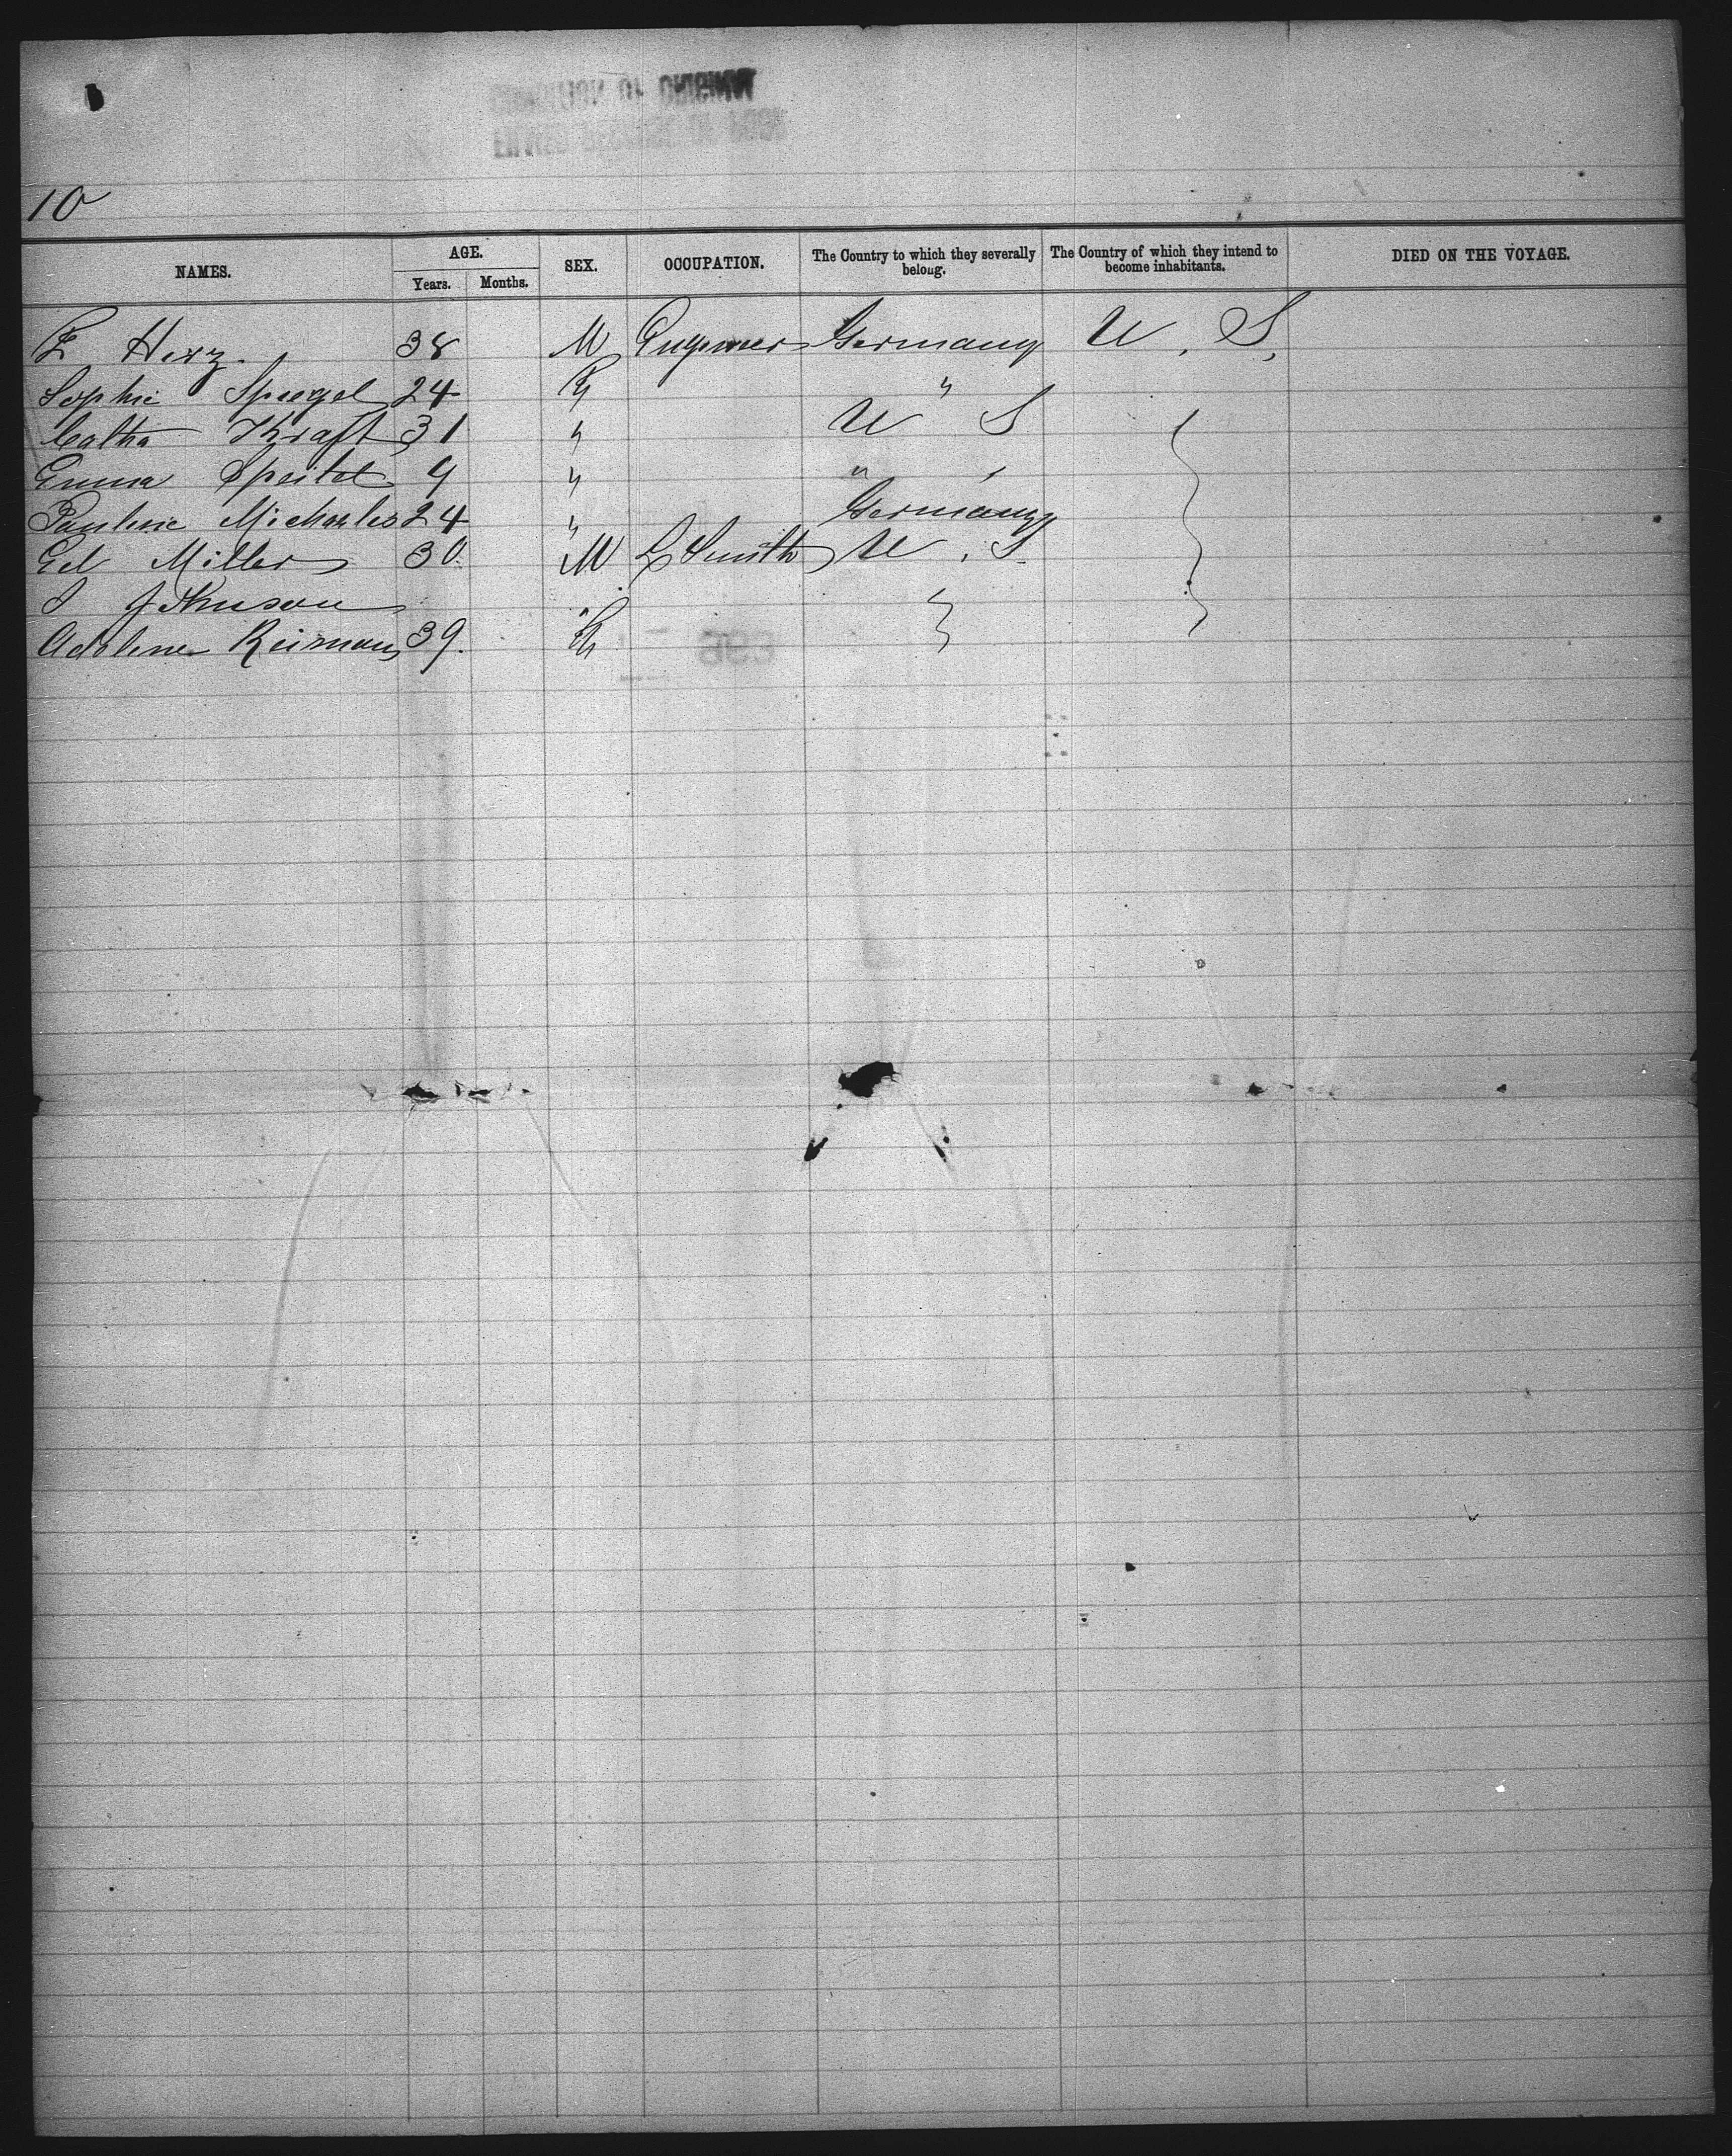 10
NAMES. AGE. Years. Months. SEX. OCCUPATION. The Country to which they severally belong. The Country of which they intend to become inhabitants. DIED ON THE VOYAGE.
Herz. 38 M Germany U. S.
Sophie Spiegel 24 "
Catha Kraft 31 " U S
Emma Speitel 9 " "
Pauline Michaelis 24 " Germany
Ed Miller 30. M L Smith U. S.
J Johnson "
Adolene Reimann 39.